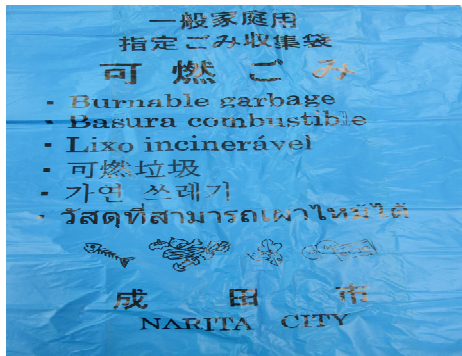 一般家庭用
指定ごみ収集袋
可燃ごみ
・Burnable garbage
・Basura combustible
・Lixo incinerável
・可燃垃圾
・가연 쓰레기
・วัสดุที่สามารถเผาไหม้ได้
成田市
NARITA CITY